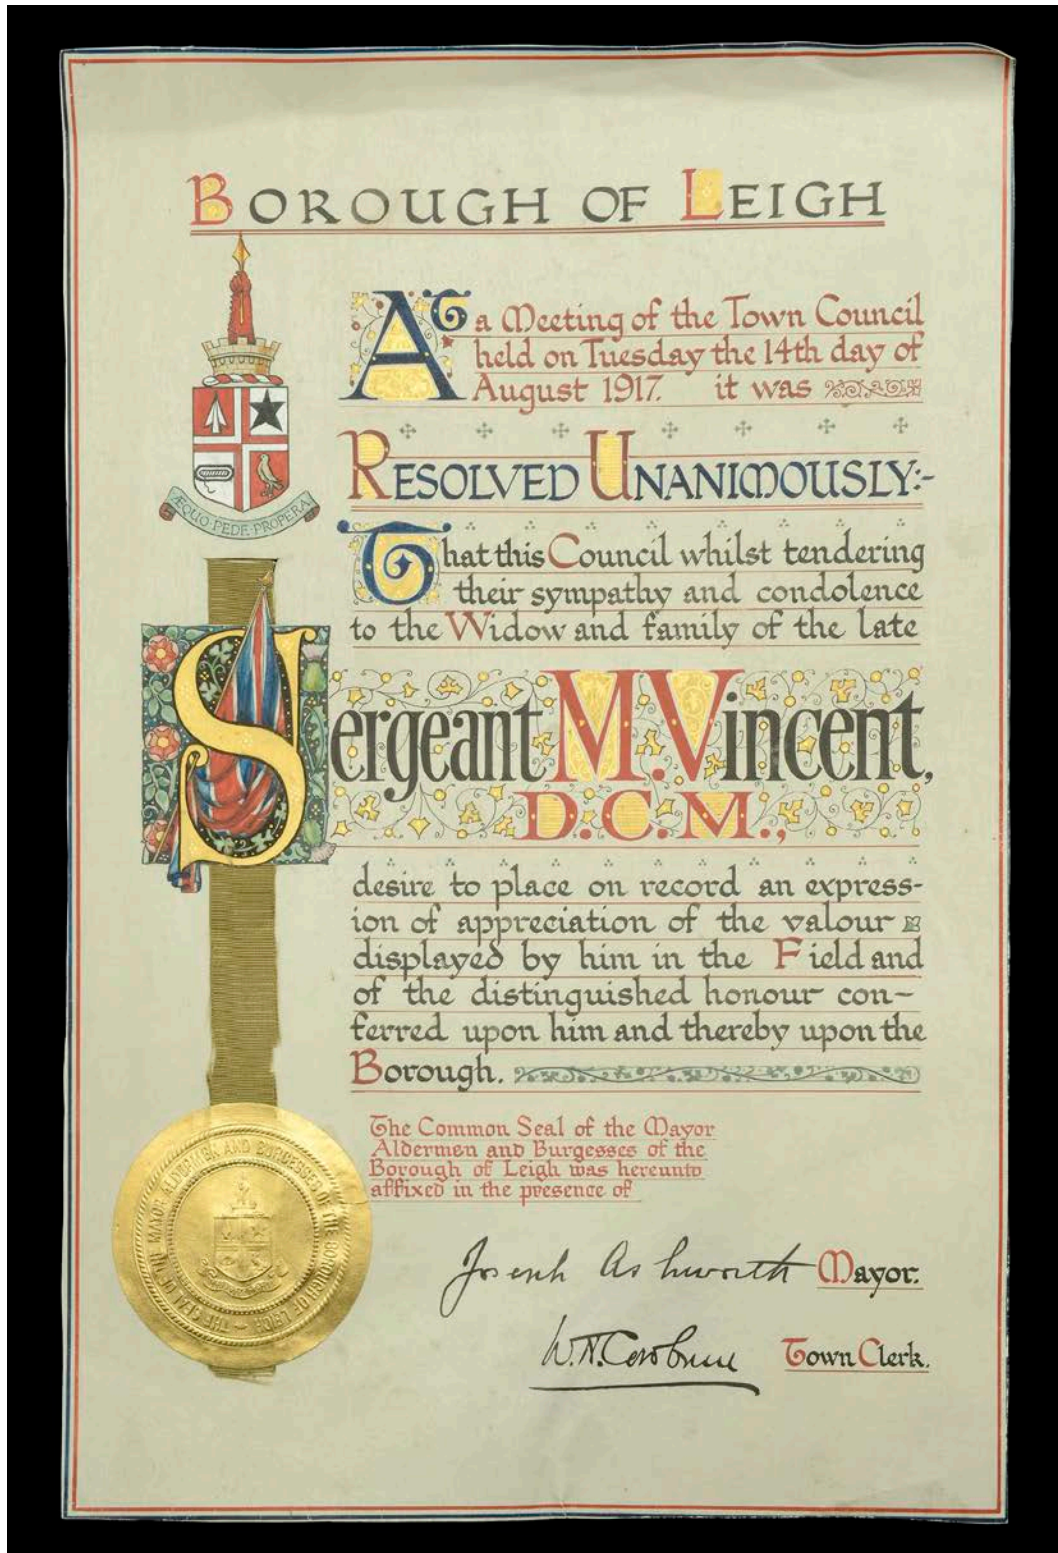 BOROUGH OF LEIGH
At a Meeting of the Town Council
held on Tuesday the 14th day of
August 1917. it was
RESOLVED UNANIMOUSLY:-
ÆQUO PEDE PROPERA
That this Council whilst tendering
their sympathy and condolence
to the Widow and family of the late
Sergeant M. Vincent,
D.C.M.,
desire to place on record an express-
ion of appreciation of the valour
displayed by him in the Field and
of the distinguished honour con-
ferred upon him and thereby upon the
Borough.
The Common Seal of the Mayor
Aldermen and Burgesses of the
Borough of Leigh was hereunto
affixed in the presence of
THE SEAL OF THE MAYOR ALDERMEN AND BURGESSES OF THE BOROUGH OF LEIGH
Joseph Ashworth Mayor.
Town Clerk.